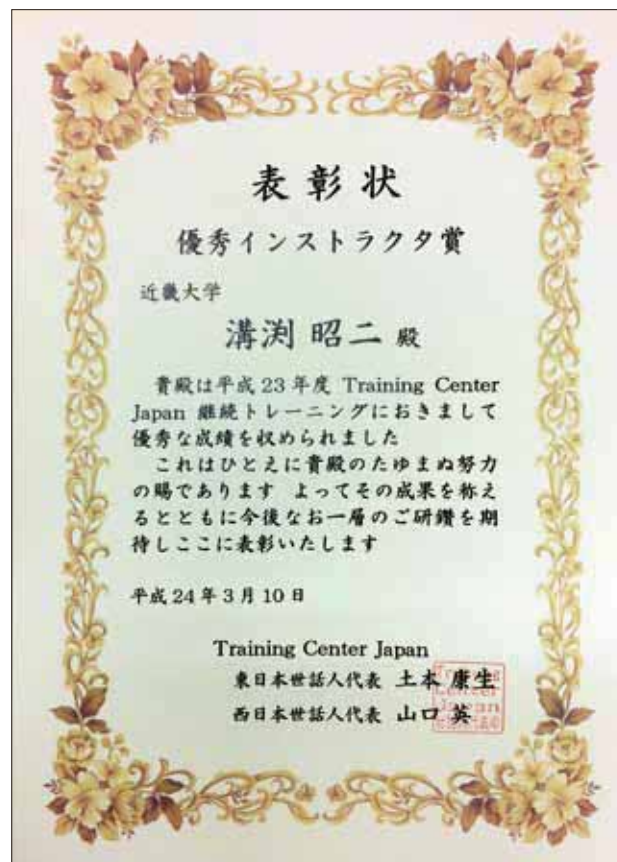 表彰状
優秀インストラクタ賞
近畿大学
溝渕 昭二 殿
貴殿は平成23年度 Training Center
Japan 継続トレーニングにおきまして
優秀な成績を収められました
これはひとえに貴殿のたゆまぬ努力
の賜であります よってその成果を称え
るとともに今後なお一層のご研鑽を期
待しここに表彰いたします
平成24年3月10日
Training Center Japan
東日本世話人代表 土本 康生
西日本世話人代表 山口 英
Training
Center
Japan